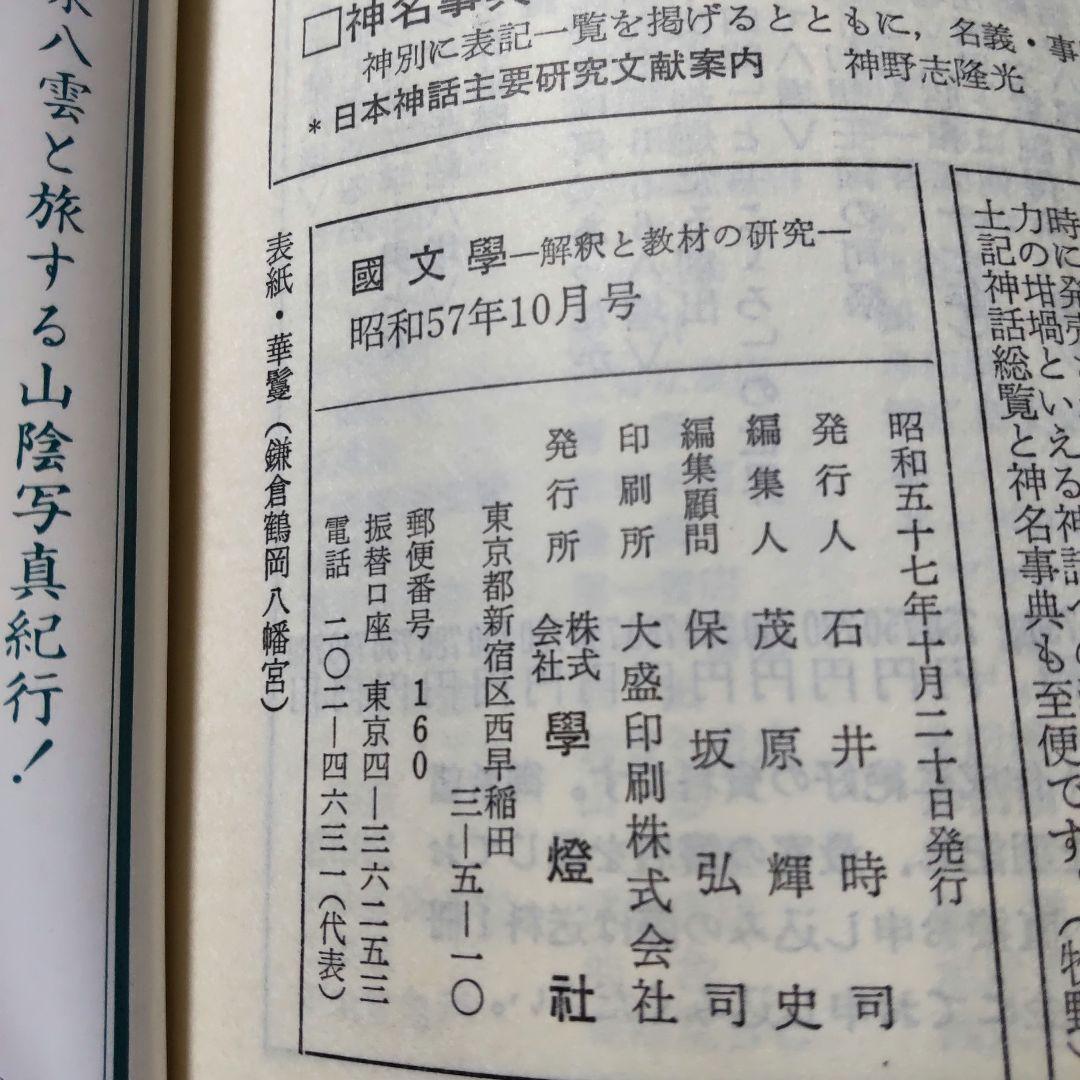 八雲と旅する山陰写真紀行!
□神名事典
神別に表記一覧を掲げるとともに, 名義・事
*日本神話主要研究文献案内 神野志隆光
國文學―解釈と教材の研究―
昭和57年10月号
昭和五十七年十月二十日発行
発行人 石井時司
編集人 茂原輝史
編集顧問 保坂弘司
印刷所 大盛印刷株式会社
発行所 株式会社 學燈社
東京都新宿区西早稲田
三―五―一〇
郵便番号 160
振替口座 東京四―三六二五三
電話 二〇二―四六三一(代表)
表紙・華鬘(鎌倉鶴岡八幡宮)
時に発売
力の坩堝といえる神話への
土記神話総覧と神名事典も至便です。(牧野)